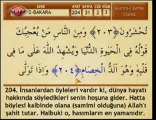 SURE AYET SAYFA CÜZ HİZB
2-BAKARA 204 31 2 3
تُحْشَرُونَ ﴿٢٠٣﴾ وَمِنَ النَّاسِ مَنْ يُعْجِبُكَ
قَوْلُهُ فِي الْحَيٰوةِ الدُّنْيَا وَيُشْهِدُ اللّٰهَ عَلٰى مَا
فِي قَلْبِهِ وَهُوَ اَلَدُّ الْخِصَامِ ﴿٢٠٤﴾
204. İnsanlardan öyleleri vardır ki, dünya hayatı
hakkında söyledikleri senin hoşuna gider. Hatta
böylesi kalbinde olana (samimi olduğuna) Allah'ı
şahit tutar. Halbuki o, hasımların en yamanıdır.